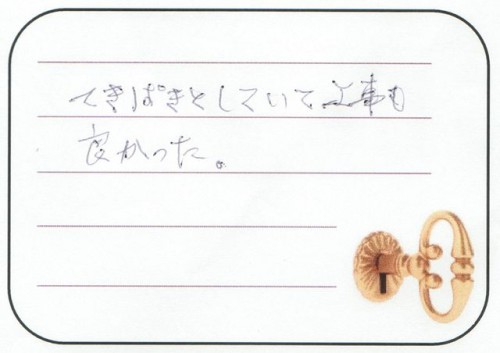 てきぱきとしていて工事も
良かった。